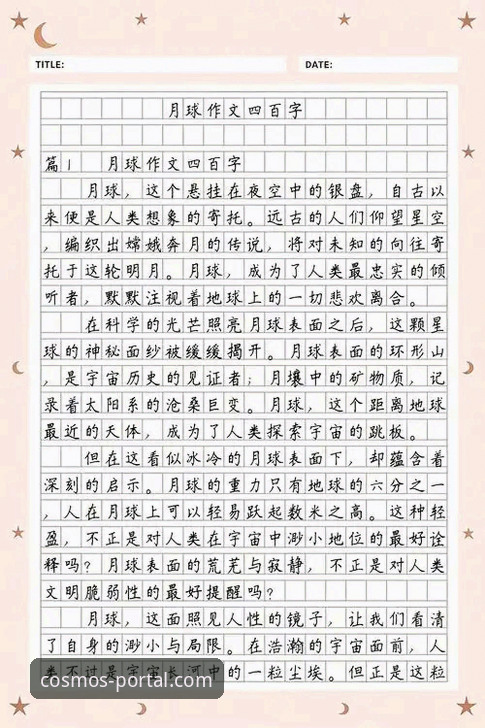 TITLE:
DATE:
月球作文四百字
篇1 月球作文四百字
月球，这个悬挂在夜空中的银盘，自古以
来便是人类想象的寄托。远古的人们仰望星空
，编织出嫦娥奔月的传说，将对未知的向往寄
托于这轮明月。月球，成为了人类最忠实的倾
听者，默默注视着地球上的一切悲欢离合。
在科学的光芒照亮月球表面之后，这颗星
球的神秘面纱被缓缓揭开。月球表面的环形山
，是宇宙历史的见证者；月壤中的矿物质，记
录着太阳系的沧桑巨变。月球，这个距离地球
最近的天体，成为了人类探索宇宙的跳板。
但在这看似冰冷的月球表面下，却蕴含着
深刻的启示。月球的重力只有地球的六分之一
，人在月球上可以轻易跃起数米之高。这种轻
盈，不正是对人类在宇宙中渺小地位的最好诠
释吗？月球表面的荒芜与寂静，不正是对人类
文明脆弱性的最好提醒吗？
月球，这面照见人性的镜子，让我们看清
了自身的渺小与局限。在浩瀚的宇宙面前，人
类不过是宇宙长河中的一粒尘埃。但正是这粒
cosmos-portal.com